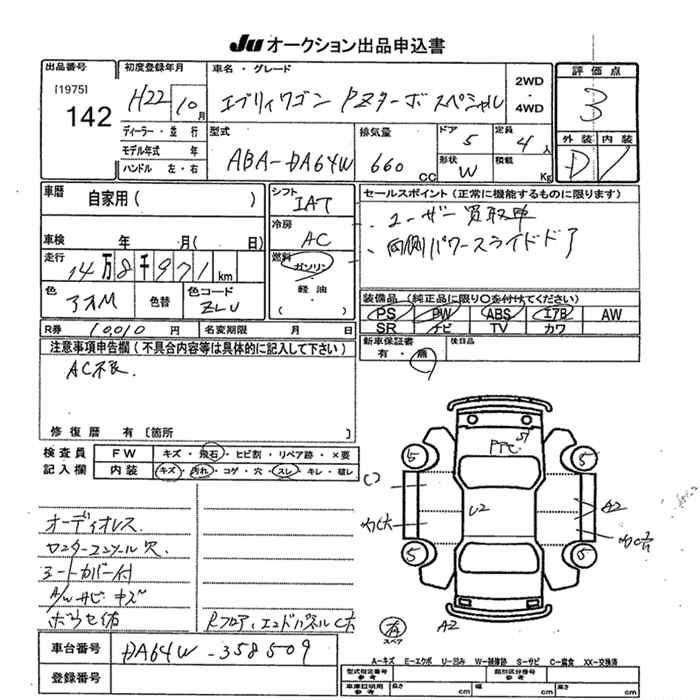 JU オークション出品申込書
出品番号
[1975]
142
初度登録年月
H22 10月
ディーラー・並行
モデル年式 年
ハンドル 左・右
車名・グレード
エブリィワゴン PZターボスペシャル
2WD
・
4WD
評価点
3
外装 内装
D
型式
ABA-DA64W
排気量
660 CC
ドア 5
定員 4人
形状 W
積載 Kg
車暦
自家用( )
車検 年 月( 日)
走行
14万8千971km
色
色替
色コード
ZLU
シフト
IAT
冷房
AC
燃料
ガソリン
・
軽油
( )
セールスポイント(正常に機能するものに限ります)
・ユーザー買取車
・両側パワースライドドア
装備品(純正品に限り○を付けてください)
PS PW ABS エアB AW
SR ナビ TV カワ
R券 10,010 円
名変期限 月 日
新車保証書
有・無
後日品
注意事項申告欄(不具合内容等は具体的に記入して下さい)
AC不良.
修復暦 有〔箇所 〕
検査員
記入欄
FW キズ・飛石・ヒビ割・リペア跡・×要
内装 キズ・汚れ・コゲ・穴・スレ・キレ・破レ
オーディオレス.
センターコンソール穴.
シートカバー付
A/Wサビ キズ
Rフロア、エンドパネルC大
車台番号
DA64W-358509
登録番号
5 5
5 5
C2
U2
A2
A2
スペア
A-キズ E-エクボ U-凹み W-補修跡 S-サビ C-腐食 XX-交換済
型式指定番号
参考
類別区分番号
参考
車庫証明用
参考
長さ cm
幅 cm
高さ cm